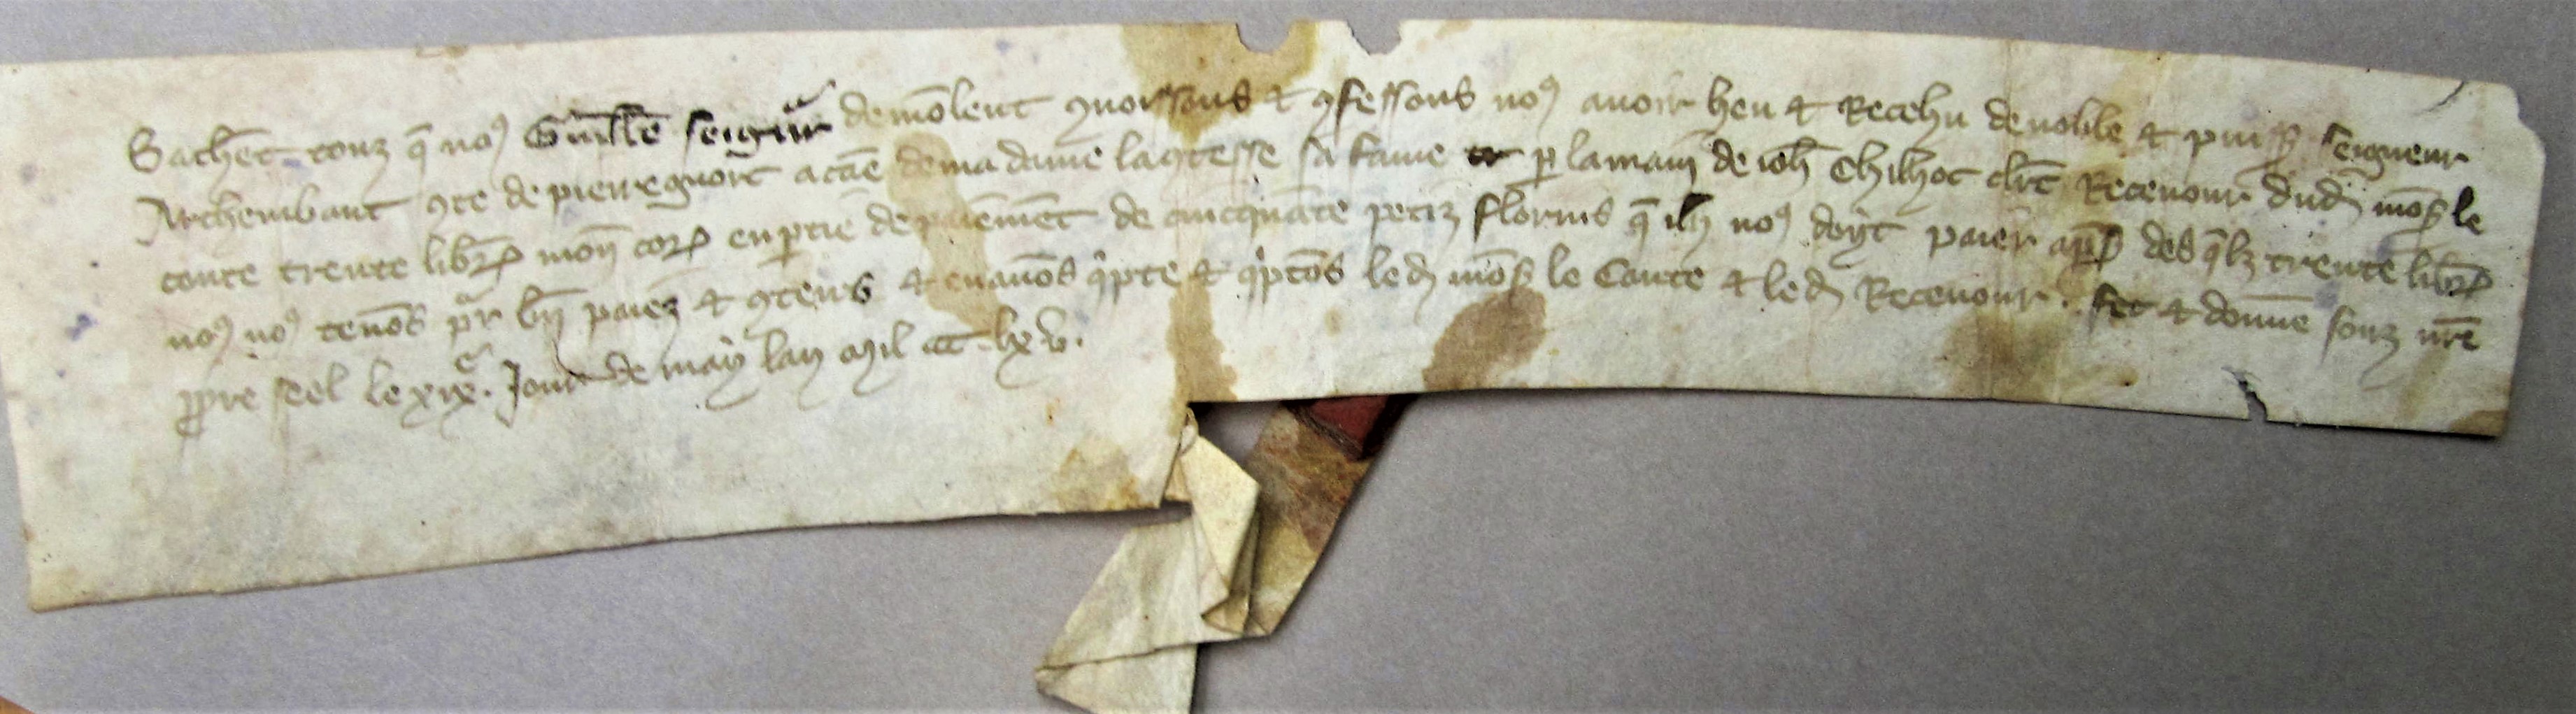 Sachēt touz q̄ noꝯ Guill̄e seign̄r de mōlent ꝯnoissons et ꝯfessons noꝯ avoir heu et Recehu de noble et puiss̄ seigneur
Archembaut ꝯte de pierreguort̄ a cāe de ma dame la ꝯtesse sa fame p̱ la main de ioh̄ Chilhoc cler̄c Recevour dud̄ mōs̄ le
conte trente libr̄ mon̄ cor̄ en p̱tie de paiemēt de cincquāte petiz florins q̄ ilh noꝯ doyt paier ap̄s des q̄lz trente libr̄
noꝯ noꝯ tenōs p̱r bn̄ paiez et ꝯtens et en avōs q̇pte et q̇ptōs led̄ mōs̄ le Conte et led̄ Recevour. fet et donne souz nr̄e
ꝓpre seel le xixᵉ. Jour de may lan mil ccc. lx v.